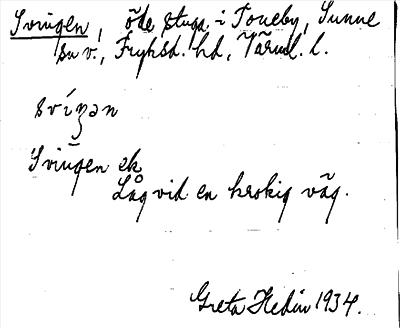 Svingen, öde stuga i Toneby, Sunne
sn v., Fryksd. hd, Värml. l.
svíŋən
Svingen ek
Låg vid en krokig väg.
Greta Hedin 1934.